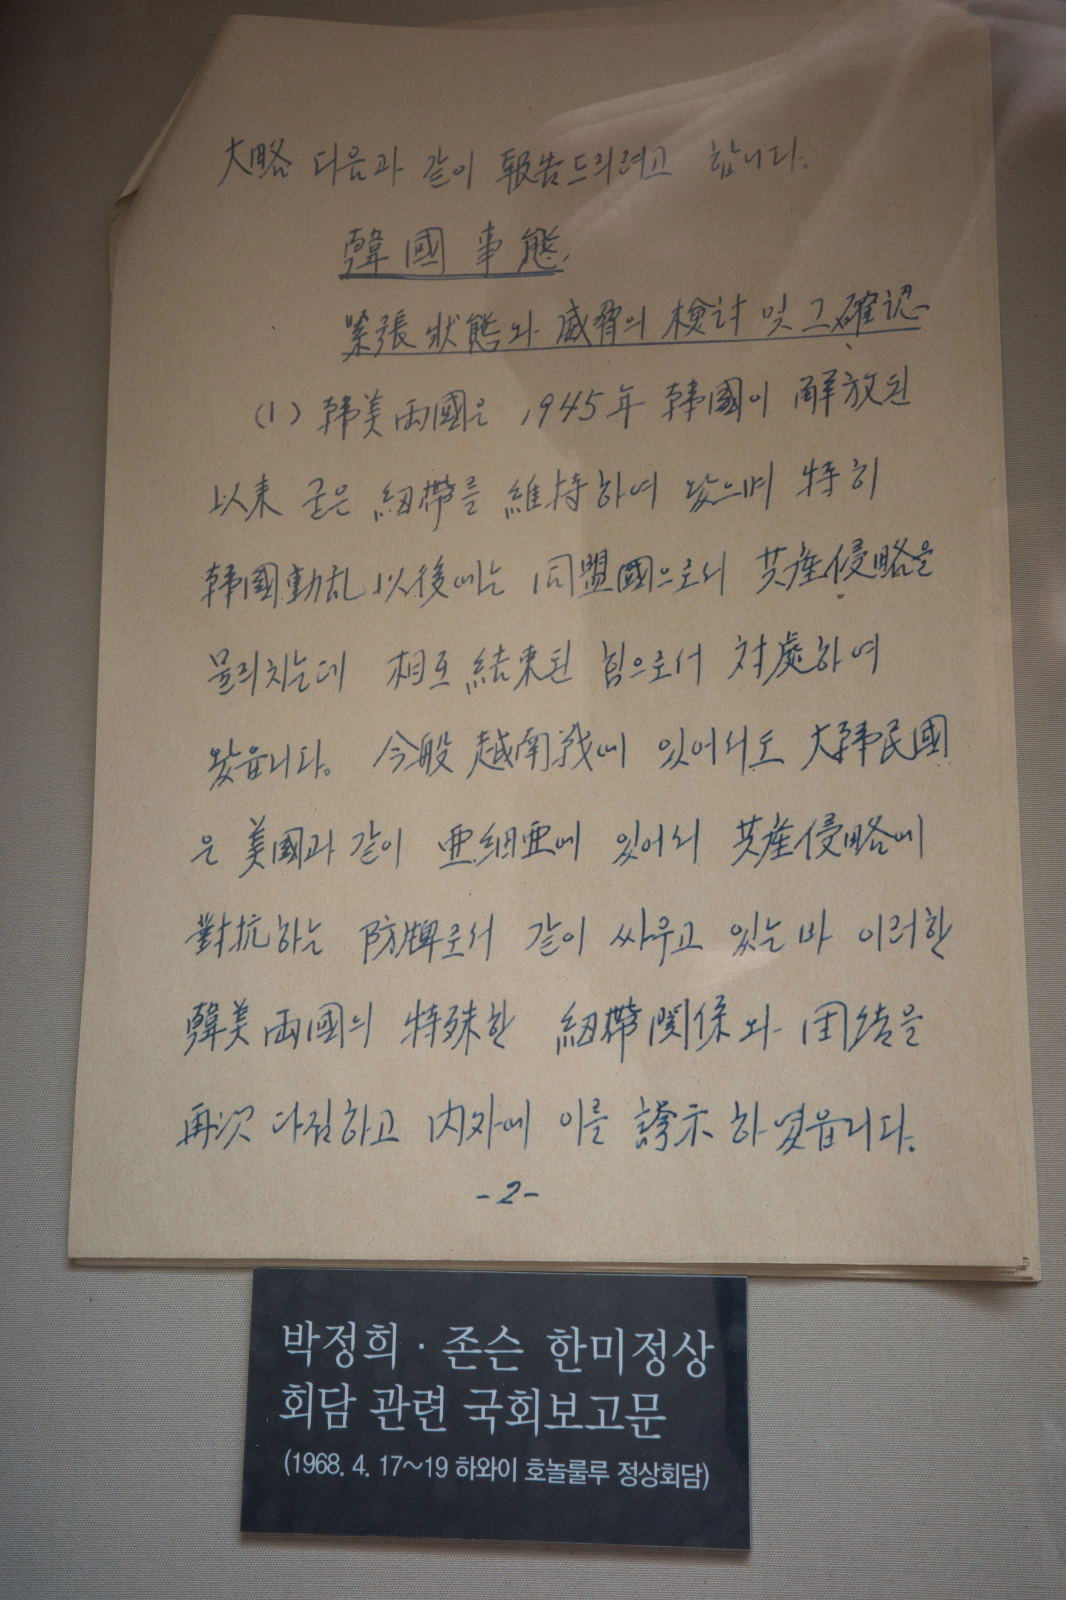 大略 다음과 같이 報告드리려고 합니다.
韓國事態
緊張狀態와 威脅의 檢討 및 그 確認
(1) 韓美兩國은 1945年 韓國이 解放된
以來 굳은 紐帶를 維持하여 왔으며 特히
韓國動乱 以後에는 同盟國으로서 共産侵略을
물리치는데 相互 結束된 힘으로서 対處하여
왔읍니다. 今般 越南戰에 있어서도 大韓民國
은 美國과 같이 亜細亜에 있어서 共産侵略에
對抗하는 防牌로서 같이 싸우고 있는 바 이러한
韓美兩國의 特殊한 紐帶関係와 団結을
再次 다짐하고 內外에 이를 誇示하였읍니다.
-2-
박정희 · 존슨 한미정상
회담 관련 국회보고문
(1968. 4. 17~19 하와이 호놀룰루 정상회담)